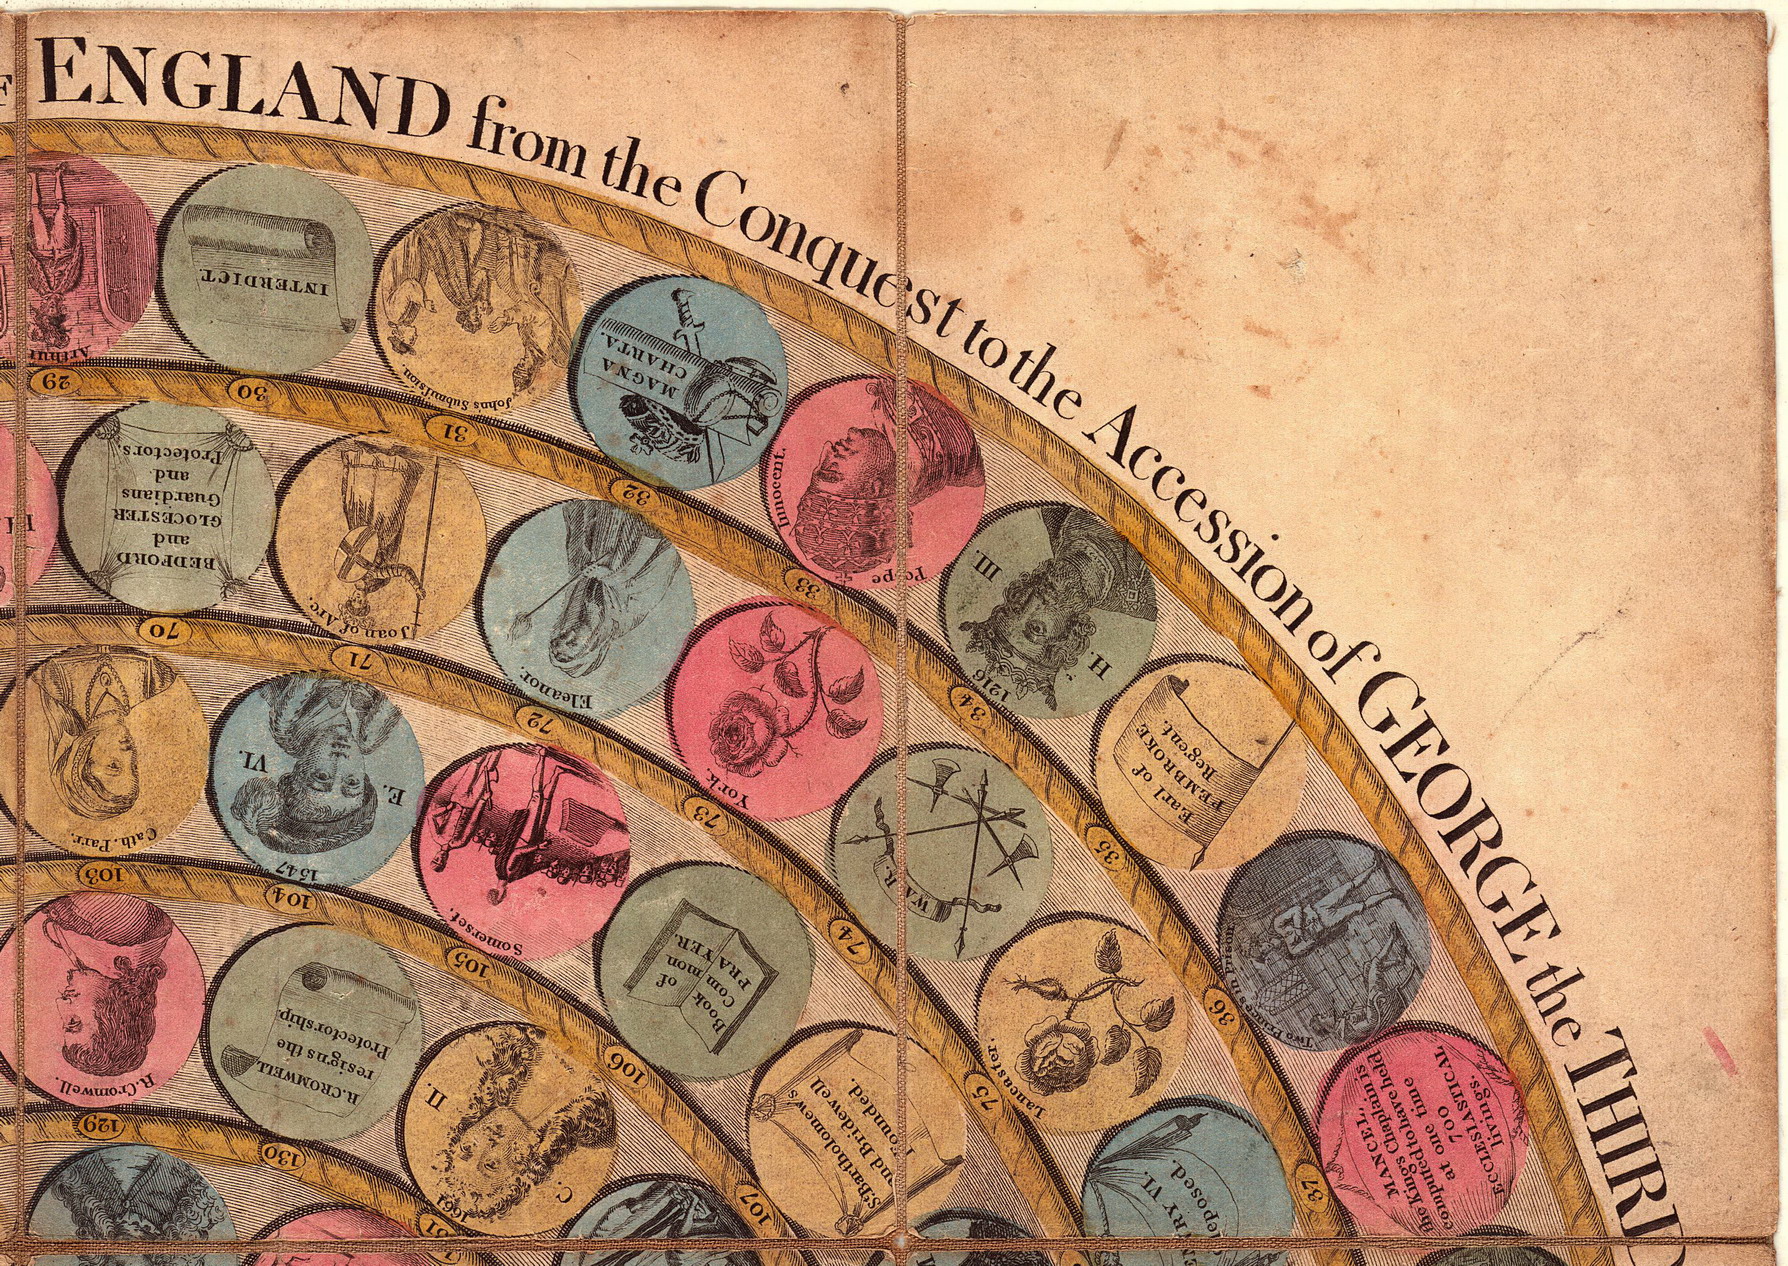 F ENGLAND from the Conquest to the Accession of GEORGE the THIRD
Arthur
29
INTERDICT.
30
Johns Submission.
31
MAGNA
CHARTA.
32
Pope Innocent.
33
H. III.
1216
34
Earl of
PEMBROKE
Regent.
35
Two Princes in Prison
36
MANCEL, the Kings Chaplain is
computed to have held
at one time
700
ECCLESIASTICAL
livings.
37
BEDFORD
and
GLOCESTER
Guardians
and
Protectors
70
Joan of Arc.
71
Eleanor.
72
York.
73
W. R.
74
Lancaster.
75
HENRY VI.
deposed.
Cath. Parr.
103
E. VI.
1547
104
Somerset.
105
Book of
Common
PRAYER.
106
St. Bartholomews
and Bridewell
Founded.
107
R. Cromwell.
129
R. CROMWELL
resigns the
Protectorship.
130
C II.
1661
131